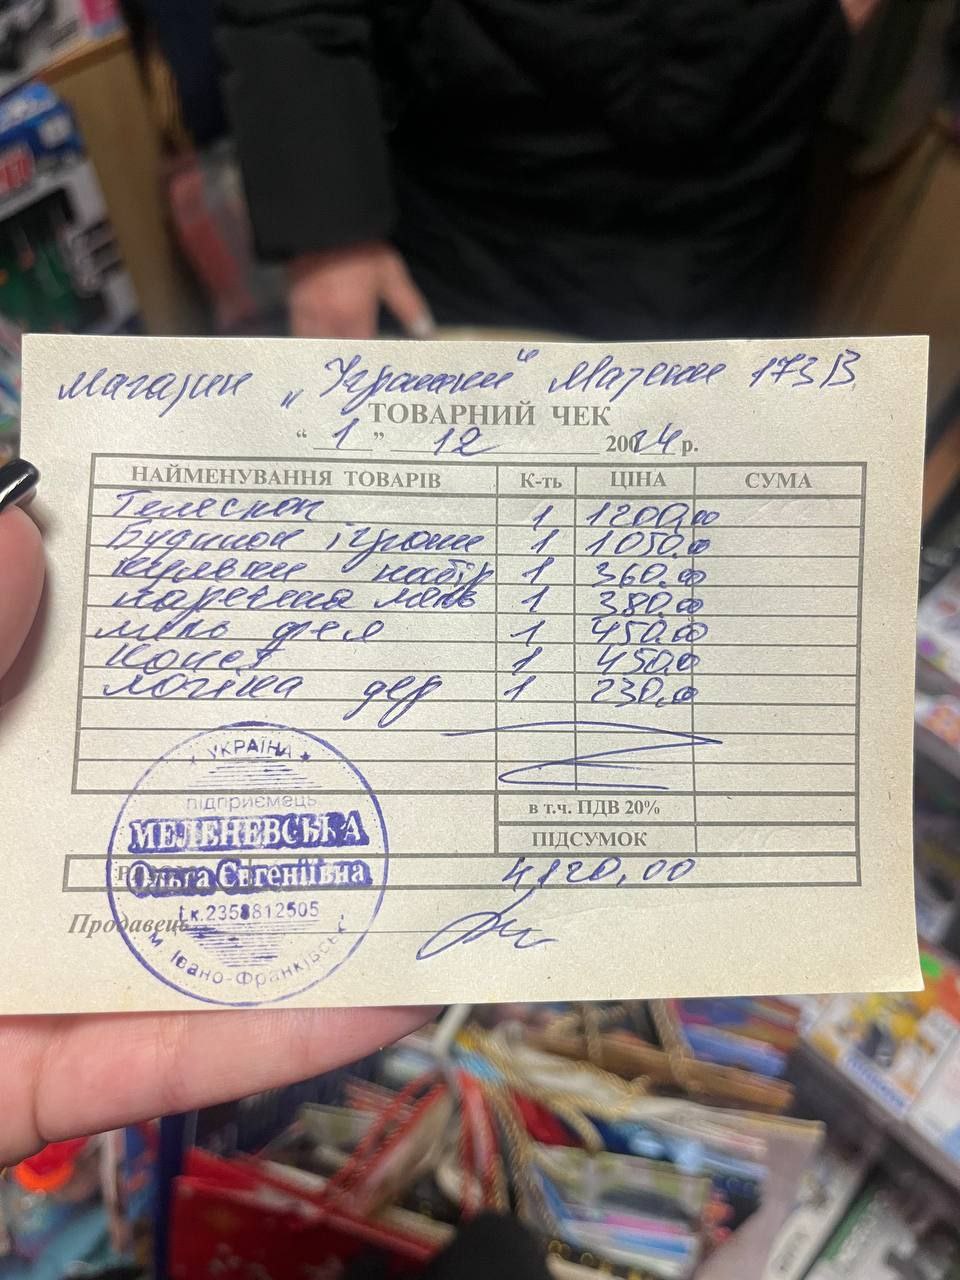 магазин „Іграшки" Мазепи 173В
ТОВАРНИЙ ЧЕК
“ 1 ” 12 20024 р.
НАЙМЕНУВАННЯ ТОВАРІВ К-ть ЦІНА СУМА
Телескоп 1 1200,00
Будинок ігровий 1 1050,00
набір 1 360,00
наречена лель 1 380,00
лель фея 1 450,00
Конег 1 450,00
логіка дер 1 230,00
в т.ч. ПДВ 20%
ПІДСУМОК
4120,00
Продавець
УКРАЇНА
підприємець
МЕЛЕНЕВСЬКА
Ольга Євгеніївна
і.к.2358812505
м. Івано-Франківськ